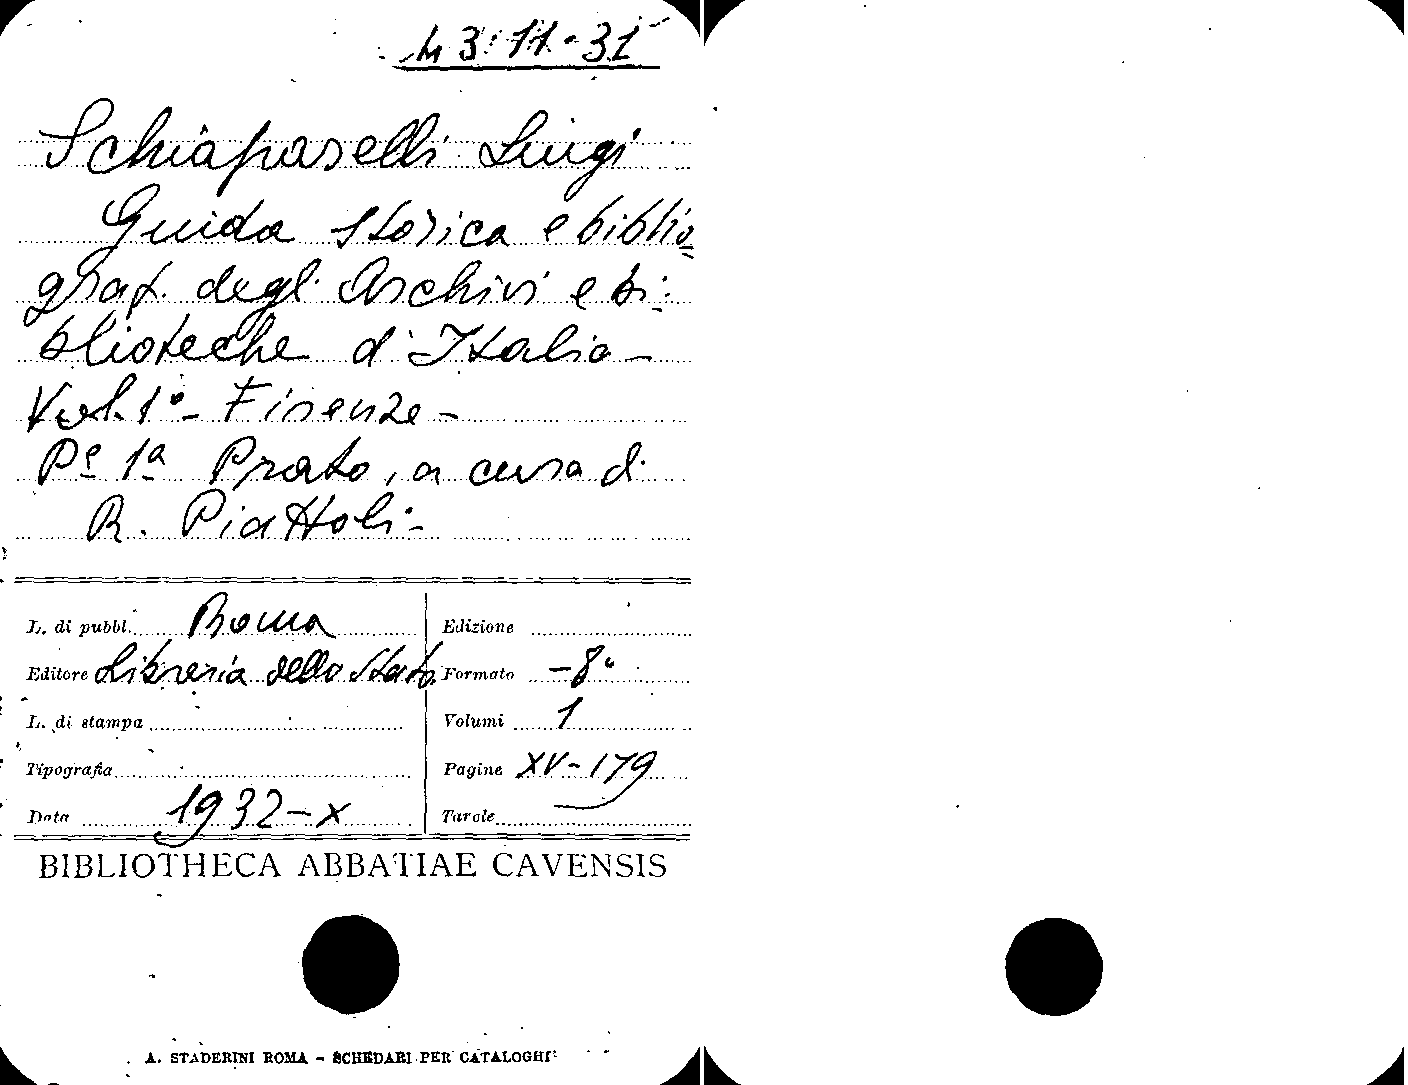 43-11-31
Schiaparelli Luigi
Guida storica e biblio
graf. degl. Archivi e bi-
blioteche d'Italia -
Vol. 1° - Firenze -
Pe 1a Prato, a cura di
R. Piattoli -
L. di pubbl. Roma
Edizione
Editore Libreria dello Stato
Formato - 8°
L. di stampa
Volumi 1
Tipografia
Pagine XV-179
Data 1932-X
Tavole
BIBLIOTHECA ABBATIAE CAVENSIS
A. STADERINI ROMA - SCHEDARI PER CATALOGHI